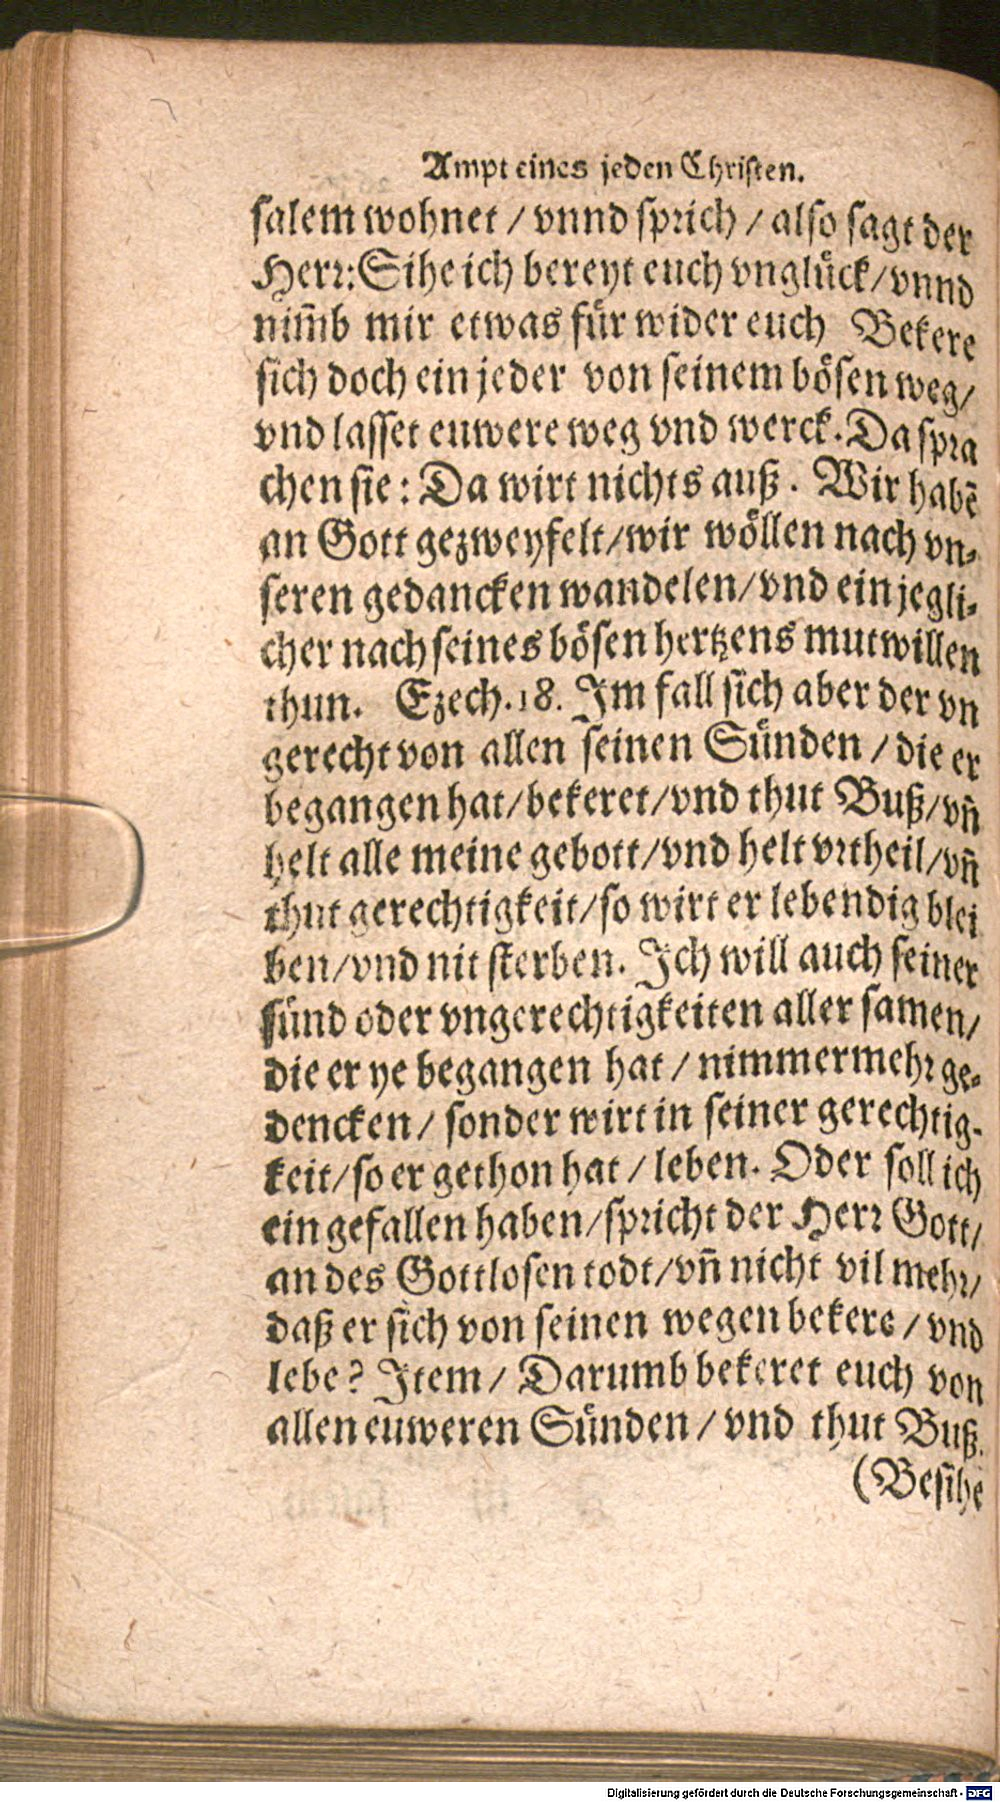 Ampt eines jeden Christen.
salem wohnet / vnnd sprich / also sagt der
Herr: Sihe ich bereyt euch vnglück / vnnd
nim̃b mir etwas für wider euch Bekere
sich doch ein jeder von seinem bösen weg /
vnd lasset euwere weg vnd werck. Da spra
chen sie : Da wirt nichts auß . Wir habẽ
an Gott gezweyfelt / wir wöllen nach vn-
seren gedancken wandelen / vnd ein jegli-
cher nach seines bösen hertzens mutwillen
thun. Ezech. 18. Im fall sich aber der vn
gerecht von allen seinen Sünden / die er
begangen hat / bekeret / vnd thut Buß / vñ
helt alle meine gebott / vnd helt vrtheil / vñ
thut gerechtigkeit / so wirt er lebendig blei
ben / vnd nit sterben. Ich will auch seiner
sünd oder vngerechtigkeiten aller samen /
die er ye begangen hat / nimmermehr ge-
dencken / sonder wirt in seiner gerechtig-
keit / so er gethon hat / leben. Oder soll ich
ein gefallen haben / spricht der Herr Gott /
an des Gottlosen todt / vñ nicht vil mehr /
daß er sich von seinen wegen bekere / vnd
lebe ? Item / Darumb bekeret euch von
allen euweren Sünden / vnd thut Buß.
(Besihe
Digitalisierung gefördert durch die Deutsche Forschungsgemeinschaft - DFG